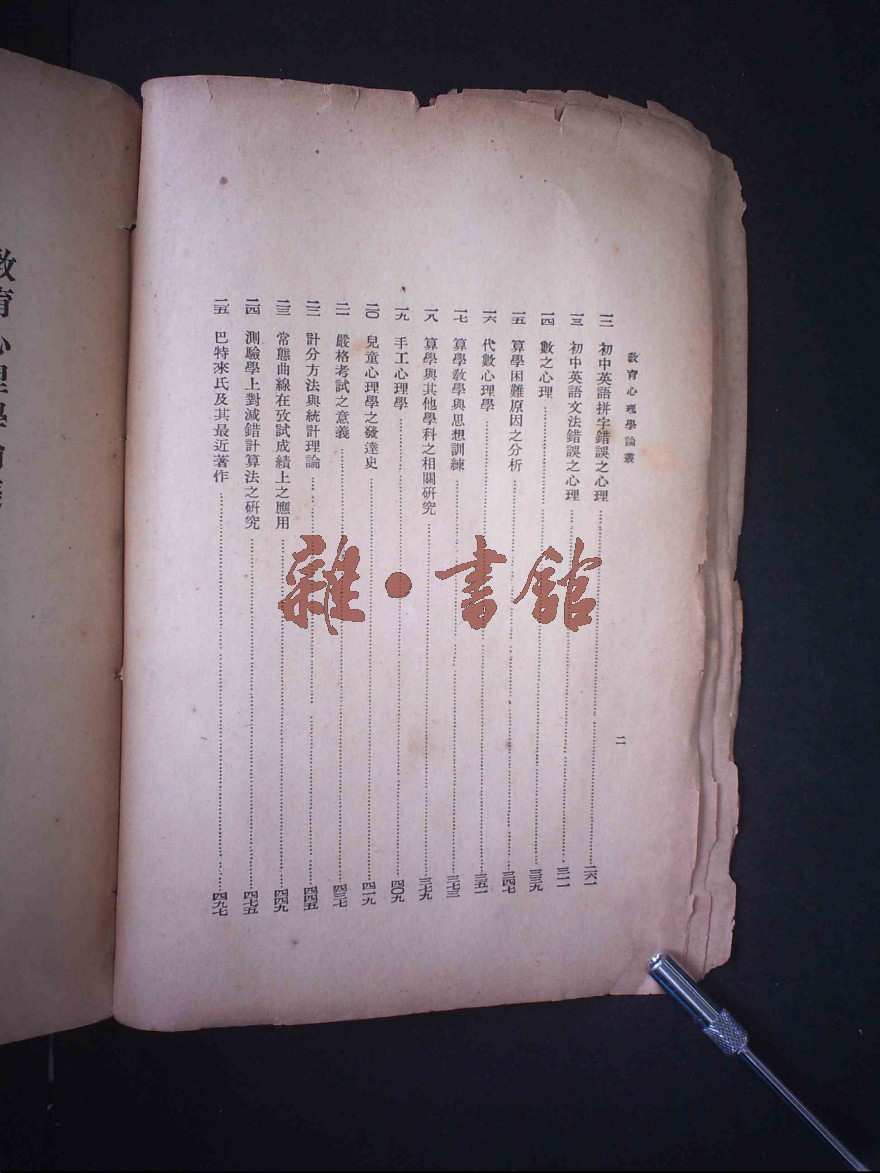 教育心理學論叢
二
一二 初中英語拼字錯誤之心理 二六一
一三 初中英語文法錯誤之心理 三一一
一四 數之心理 三三九
一五 算學困難原因之分析 三四七
一六 代數心理學 三五一
一七 算學教學與思想訓練 三七三
一八 算學與其他學科之相關研究 三七九
一九 手工心理學 四〇九
二〇 兒童心理學之發達史 四一九
二一 嚴格考試之意義 四三七
二二 計分方法與統計理論 四四五
二三 常態曲線在攷試成績上之應用 四四九
二四 測驗學上對減錯計算法之研究 四七五
二五 巴特來氏及其最近著作 四九七
雜·書館
教育心理學論叢